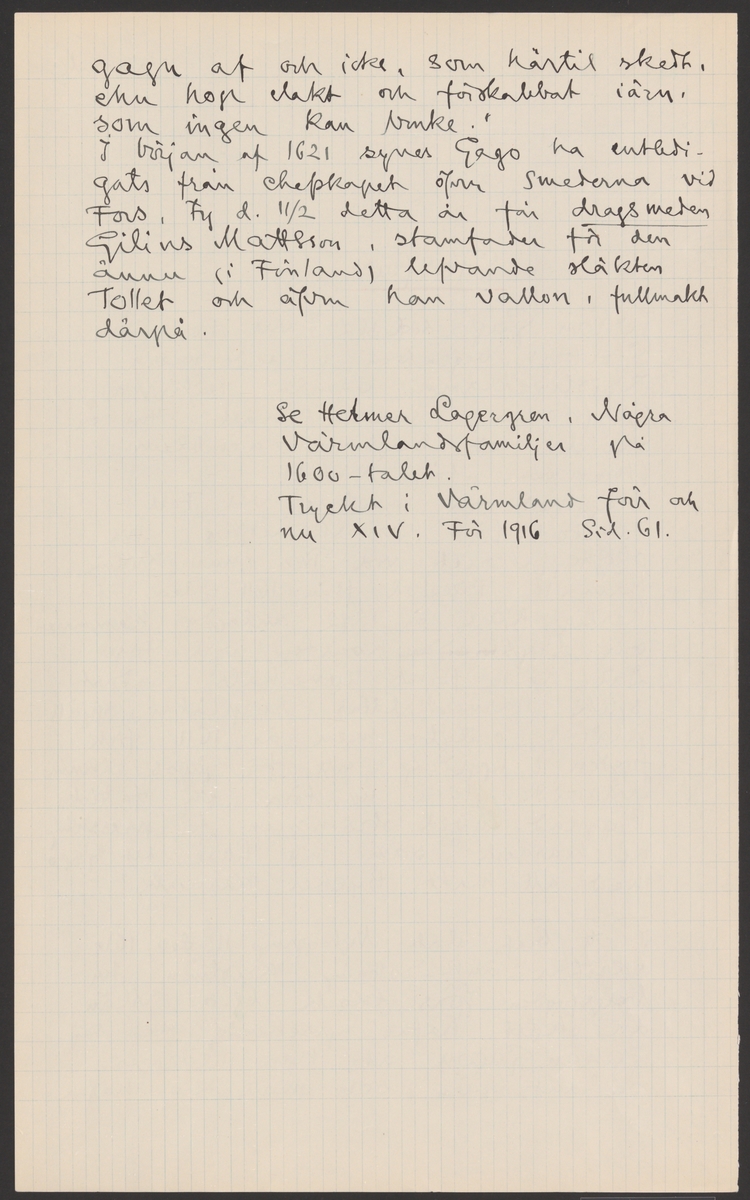 gagn af och icke, som härtil skedt,
ehn hop elakt och förskabbat iärn,
som ingen kan bruke."
I början af 1621 synes Gago ha entledi-
gats från chefskapet öfver smederna vid
Fors, ty d. 11/2 detta år får dragsmeden
Gilius Mattsson, stamfader för den
ännu (i Finland) lefvande släkten
Tollet och äfven han vallon, fullmakt
därpå.
Se Helmer Lagergren, Några
Värmlandsfamiljer på
1600-talet.
Tryckt i Värmland förr och
nu XIV. För 1916 Sid. 61.